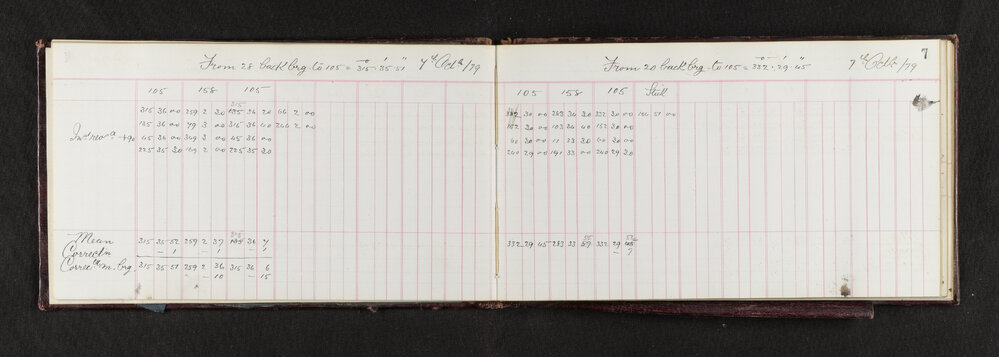 From 28 back brg to 105 = 315° 35' 51" 7th Octr /79
105 158 105
315
315 36 00 259 2 30 135 36 20 66 2 00
135 36 00 79 3 00 315 36 40 246 2 00
+90 45 36 00 349 3 00 45 36 00
225 35 30 169 2 00 225 35 30
Mean 315 35 52 259 2 37 36 7
Correctn – 1 – 1 1
m. brg. 315 35 51 259 2 36 315 36 6
– 10 – 15
7
From 20 back brg to 105 = 332° 29' 45" 7th Octr /79
105 158 105
30 00 283 30 332 30 00 51 00
152 30 00 103 34 40 152 30 00
30 00 11 33 30 30 00
240 29 00 191 33 00 240 29 30
332 29 45 283 33 332 29
– 7